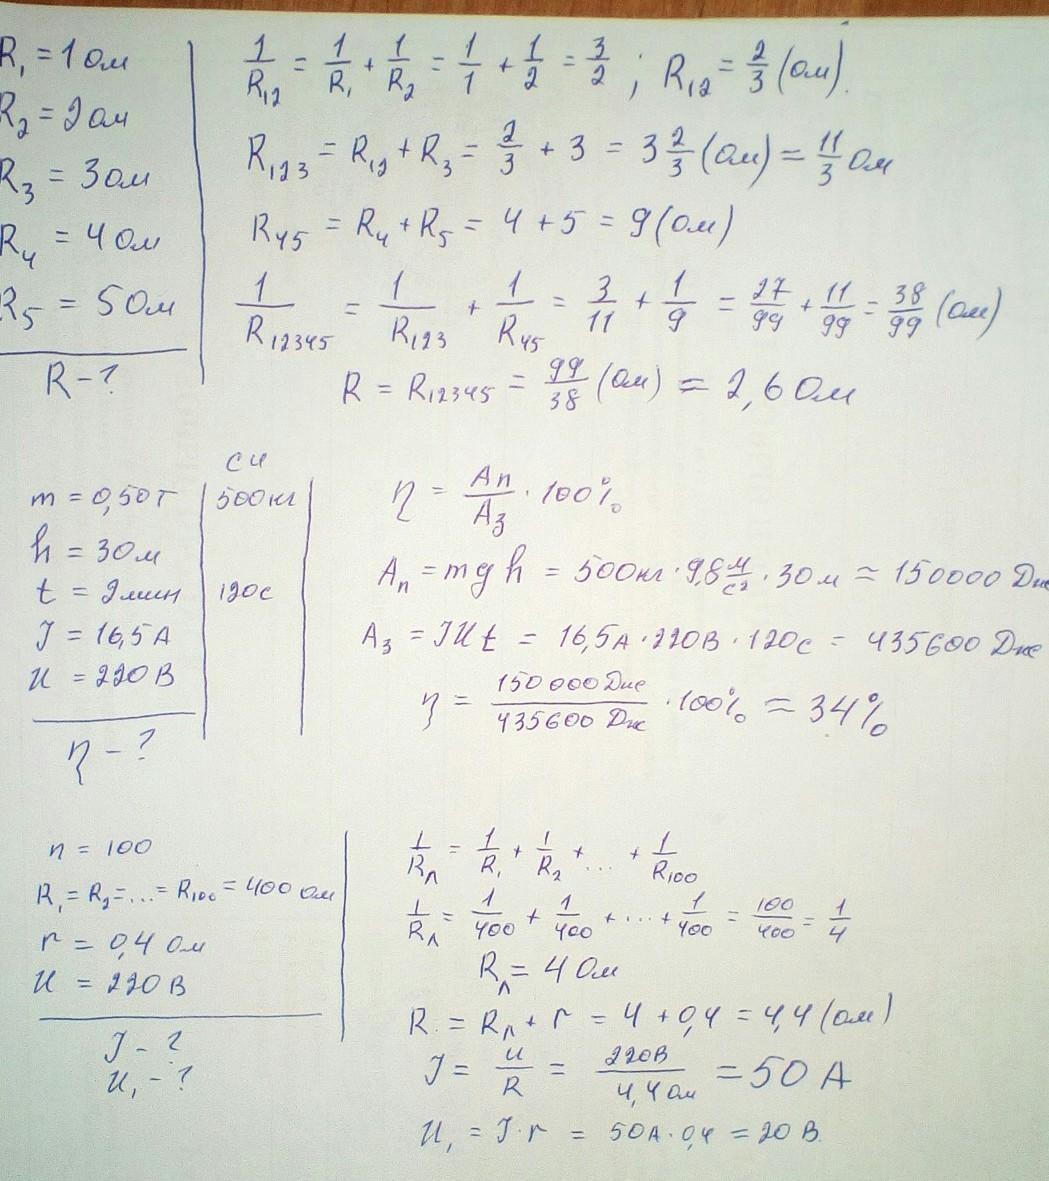 R₁ = 1 Ом
R₂ = 2 Ом
R₃ = 3 Ом
R₄ = 4 Ом
R₅ = 5 Ом
R – ?
1/R₁₂ = 1/R₁ + 1/R₂ = 1/1 + 1/2 = 3/2 ; R₁₂ = 2/3 (Ом).
R₁₂₃ = R₁₂ + R₃ = 2/3 + 3 = 3 2/3 (Ом) = 11/3 Ом
R₄₅ = R₄ + R₅ = 4 + 5 = 9 (Ом)
1/R₁₂₃₄₅ = 1/R₁₂₃ + 1/R₄₅ = 3/11 + 1/9 = 27/99 + 11/99 = 38/99 (Ом)
R = R₁₂₃₄₅ = 99/38 (Ом) = 2,6 Ом
СИ
m = 0,50 т 500 кг
h = 30 м
t = 2 мин 120 с
J = 16,5 А
U = 220 В
η – ?
η = Aп/Aз · 100%
Aп = mgh = 500 кг · 9,8 м/с² · 30 м ≈ 150000 Дж
Aз = JUt = 16,5 А · 220 В · 120 с = 435600 Дж
η = 150 000 Дж/435600 Дж · 100% = 34%
n = 100
R₁ = R₂ = ... = R₁₀₀ = 400 Ом
r = 0,4 Ом
U = 220 В
J – ?
U₁ – ?
1/Rл = 1/R₁ + 1/R₂ + ... + 1/R₁₀₀
1/Rл = 1/400 + 1/400 + ... + 1/400 = 100/400 = 1/4
Rл = 4 Ом
R = Rл + r = 4 + 0,4 = 4,4 (Ом)
J = U/R = 220 В/4,4 Ом = 50 А
U₁ = J · r = 50 А · 0,4 = 20 В.